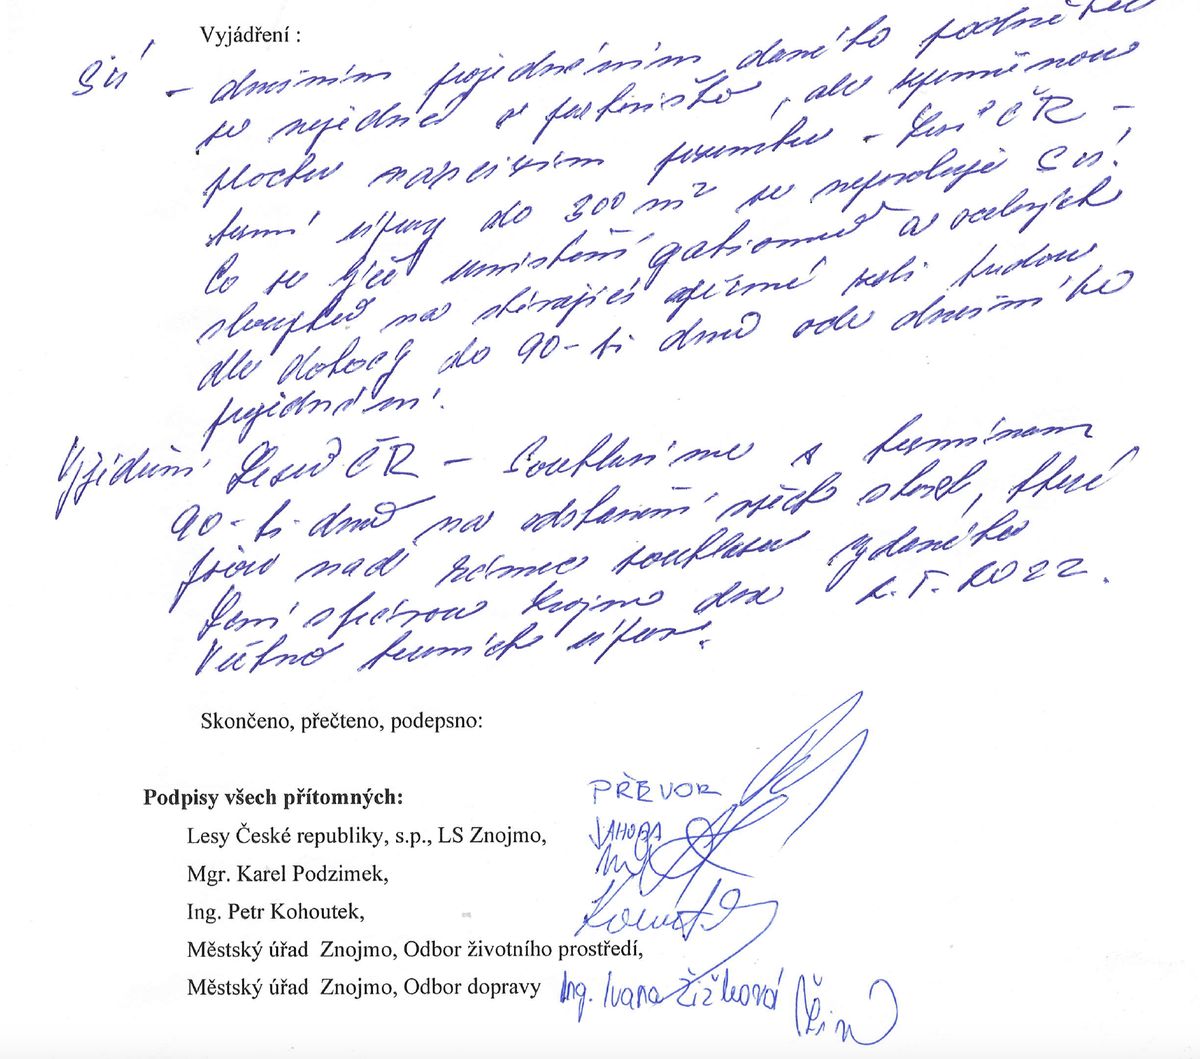 Vyjádření :
SÚ - dnešním projednáním daného podnětu
se nejedná o parkoviště, ale zpevněnou
plochu na pozemku - Lesů ČR -
terenní úpravy do 300 m² se nepovoluje SÚ.
Co se týče umístění gabionů a ocelových
sloupků na stávající opěrné zdi budou
dle dohody do 90-ti dnů ode dnešního
projednání.
Vyjádření Lesů ČR - Souhlasíme s termínem
90-ti dnů na odstranění všech staveb, které
jsou nad rámec souhlasu vydaného
Lesní správou Znojmo dne 2022.
Včetně terenních úprav.
Skončeno, přečteno, podepsno:
Podpisy všech přítomných:
PŘEVOR
Lesy České republiky, s.p., LS Znojmo,
Mgr. Karel Podzimek,
Ing. Petr Kohoutek,
Městský úřad Znojmo, Odbor životního prostředí,
Městský úřad Znojmo, Odbor dopravy Ing. Ivana Žižková